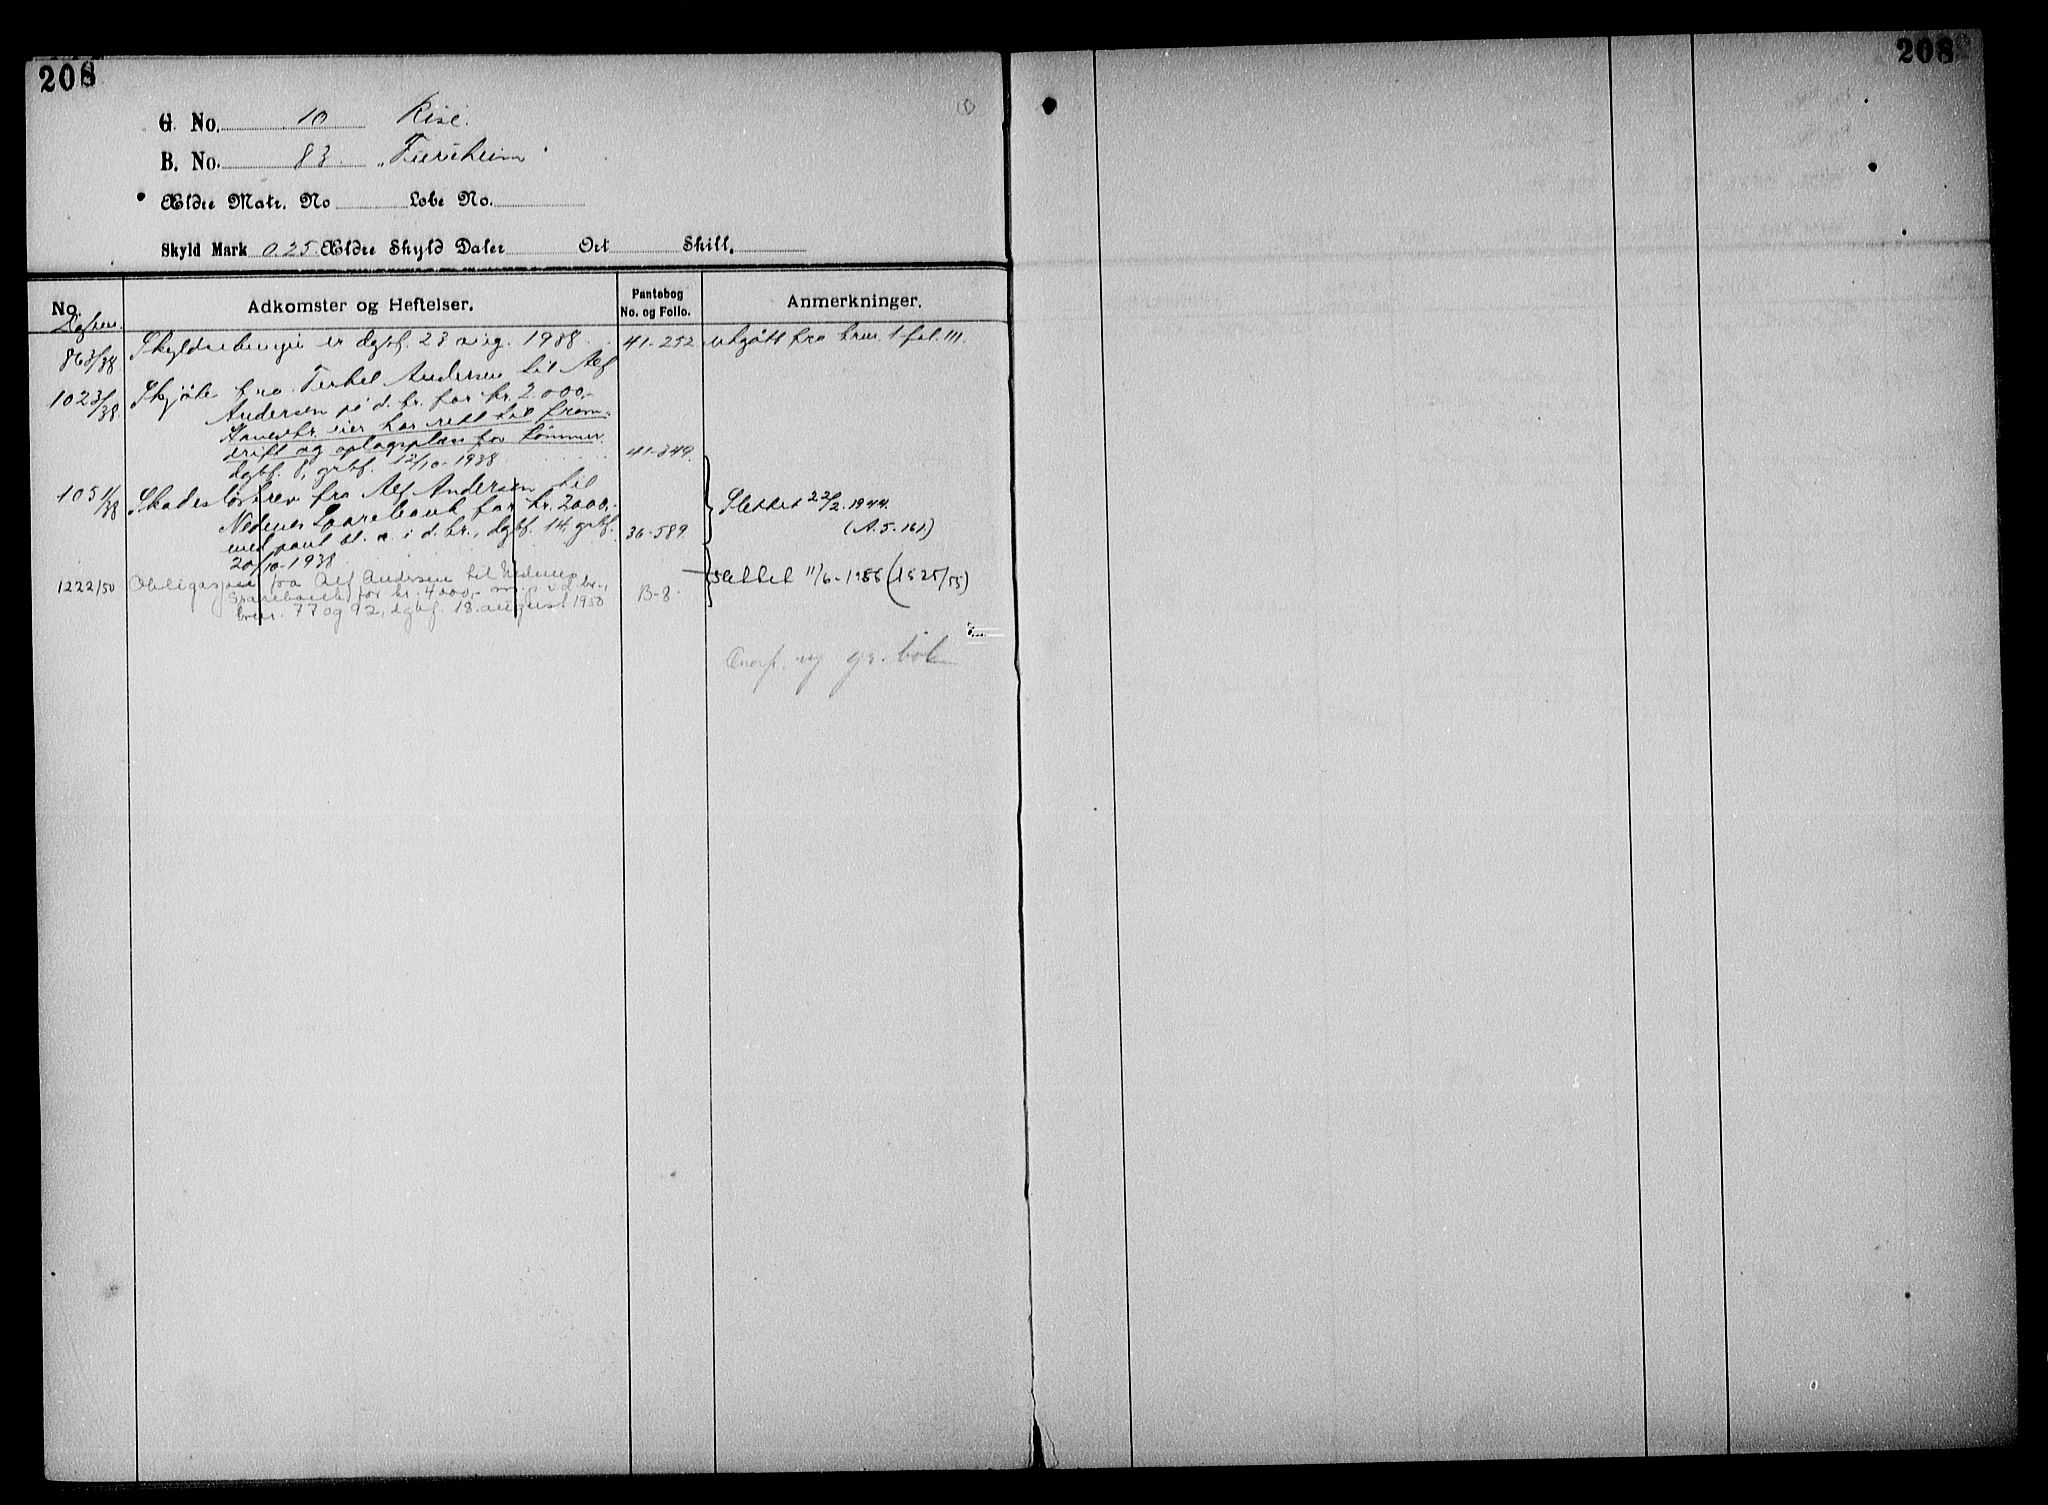 208
208
G. No. 10 Rise.
B. No. 83. "Fureheim"
Ældre Matr. No Løbe No.
Skyld Mark 0.25 Ældre Skyld Daler Ort Skill.
No. Adkomster og Heftelser. Pantebog No. og Folio. Anmerkninger.
Dagbnr.
863/38 Skyldsdelingsf. dgbf. 23 aug. 1938. 41-252 utgått fra bnr. 1 fol. 111.
1023/38 Skjøte fra Terkel Andersen til Alf
Andersen på d. br. for kr. 2.000,-
Hovedbr. eier har rett til frem-
drift og oplagsplass for tømmer.
dgbf. 8, grbf. 12/10-1938 41-349.
1051/38 Skadesløsbrev fra Alf Andersen til
Nedenes Sparebank for kr. 2000,-
med pant bl. a. i d. br., dgbf. 14, grbf. 36-589.
20/10-1938
Slettet 22/2. 1944.
(A.5-161)
1222/50 Obligasjon fra Alf Andersen til Nedenes
Sparebank for kr. 4000,- m. p. i d. br.,
bnr. 77 og 92, dgbf. 18. august 1950 B-8.
slettet 11/6-1955 (1525/55)
Overf. ny gr. bok